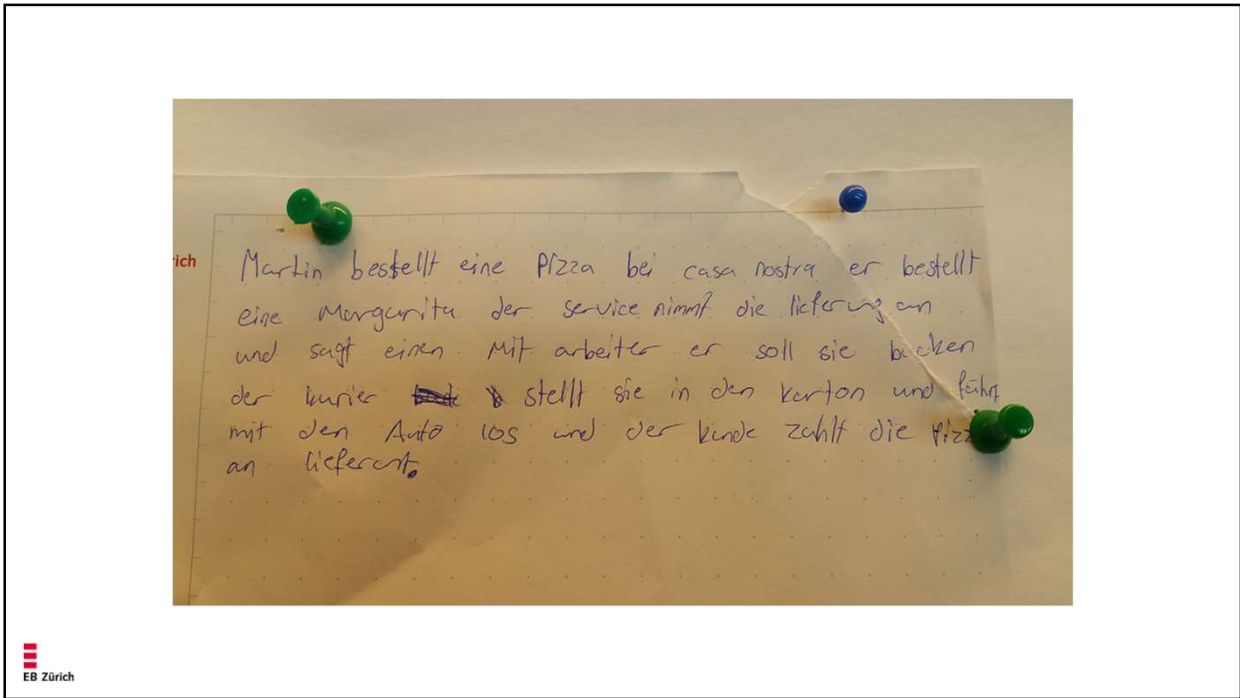 ich
Martin bestellt eine Pizza bei casa nostra er bestellt
eine Margarita der service nimmt die lieferung an
und sagt einen Mit arbeiter er soll sie backen
der kurier stellt sie in den karton und fährt
mit den Auto los und der kunde zahlt die Pizz
an lieferant.
EB Zürich